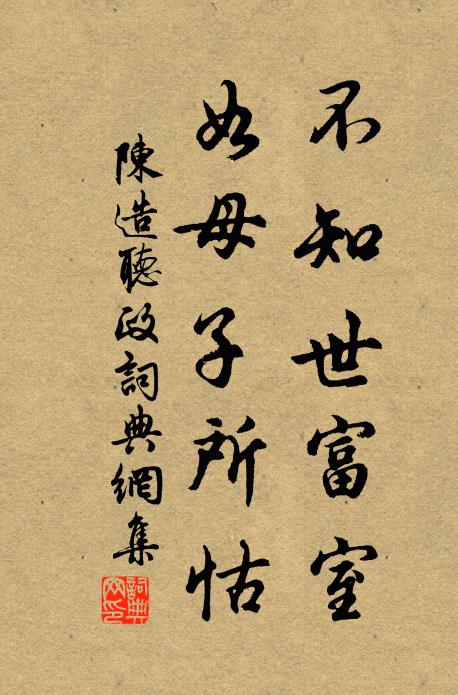 不知世富室
如母子所怙
陳造聽政詞典網集
詞典网印